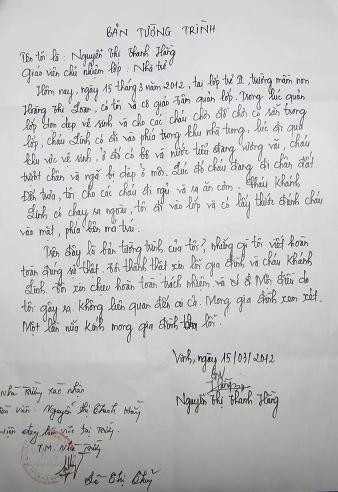 BẢN TƯỜNG TRÌNH
Tên tôi là: Nguyễn Thị Thanh Hằng
Giáo viên chủ nhiệm lớp: Nhà trẻ
Hôm nay, ngày 15 tháng 3 năm 2012, tại lớp trẻ II, trường mầm non
Hoàng Thị Loan. Có tôi và cô giáo Vân quản lớp. Trong lúc quản
lớp dọn dẹp vệ sinh và cho các cháu chơi đồ chơi có sẵn trong
lớp, cháu Linh có đi vào phía trong khu nhà trong, lúc đi qua
khu vực vệ sinh, ở đó có bô và nước tiểu đang vương vãi, cháu
trượt chân và ngã bị dập ở môi. Lúc đó cháu đang đi chân đất.
Đến trưa, tôi cho các cháu đi ngủ và sau ăn cơm. Cháu Khánh
Linh có chạy ra ngoài, tôi đi vào lớp và có lấy thước đánh cháu
vào mặt, phía bên má trái.
Trên đây là bản tường trình của tôi, những gì tôi viết hoàn
toàn đúng sự thật. Tôi thành thật xin lỗi gia đình và cháu Khánh
Linh. Tôi xin chịu hoàn toàn trách nhiệm và Mọi điều do
tôi gây ra. Không liên quan đến ai cả. Mong gia đình xem xét.
Một lần nữa kính mong gia đình tha lỗi.
Vinh, ngày 15/03/2012
Hằng
Nguyễn Thị Thanh Hằng
Nhà Trường xác nhận
Giáo viên: Nguyễn Thị Thanh Hằng
Hiện đang làm việc tại Trường
T.M. Nhà Trường
Lê Thị Thủy